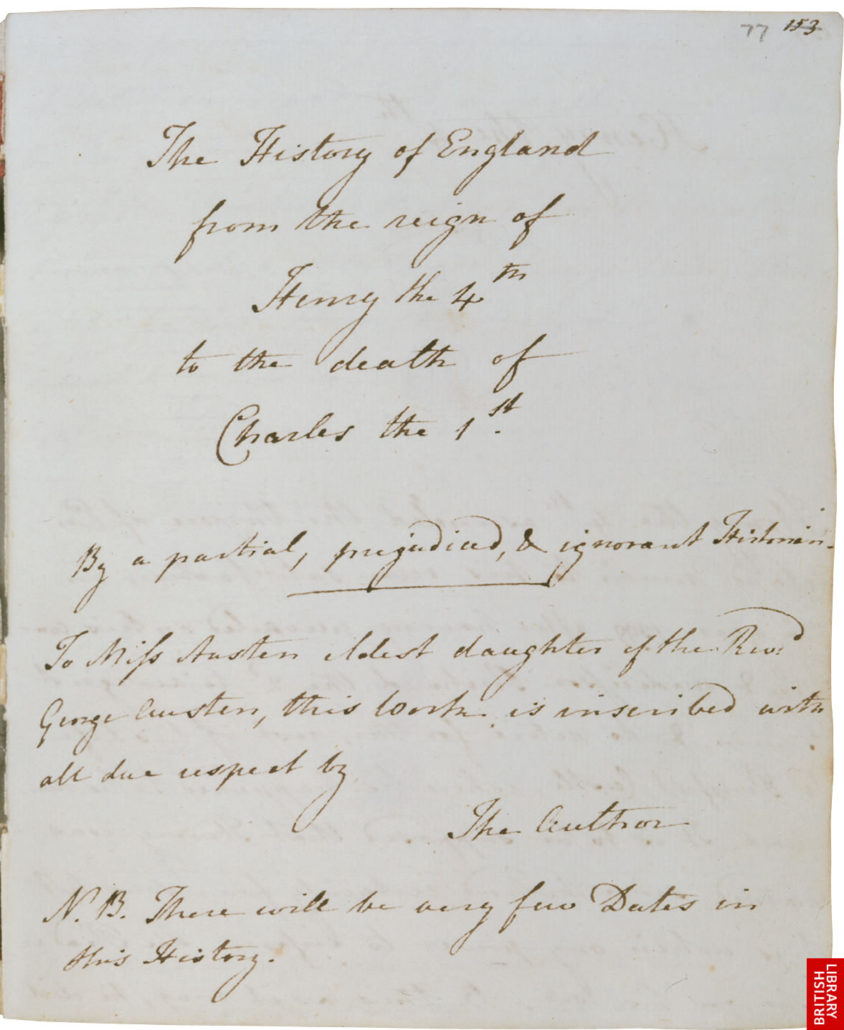 77 153
The History of England
from the reign of
Henry the 4th
to the death of
Charles the 1st.
By a partial, prejudiced, & ignorant Historian.
To Miss Austen eldest daughter of the Revd.
George Austen, this Work is inscribed with
all due respect by
The Author
N.B. There will be very few Dates in
this History.
BRITISH
LIBRARY